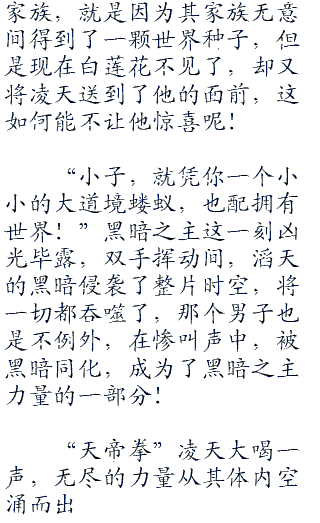 家族，就是因为其家族无意
间得到了一颗世界种子，但
是现在白莲花不见了，却又
将凌天送到了他的面前，这
如何能不让他惊喜呢！
“小子，就凭你一个小
小的大道境蝼蚁，也配拥有
世界！”黑暗之主这一刻凶
光毕露，双手挥动间，滔天
的黑暗侵袭了整片时空，将
一切都吞噬了，那个男子也
是不例外，在惨叫声中，被
黑暗同化，成为了黑暗之主
力量的一部分！
“天帝拳”凌天大喝一
声，无尽的力量从其体内空
涌而出